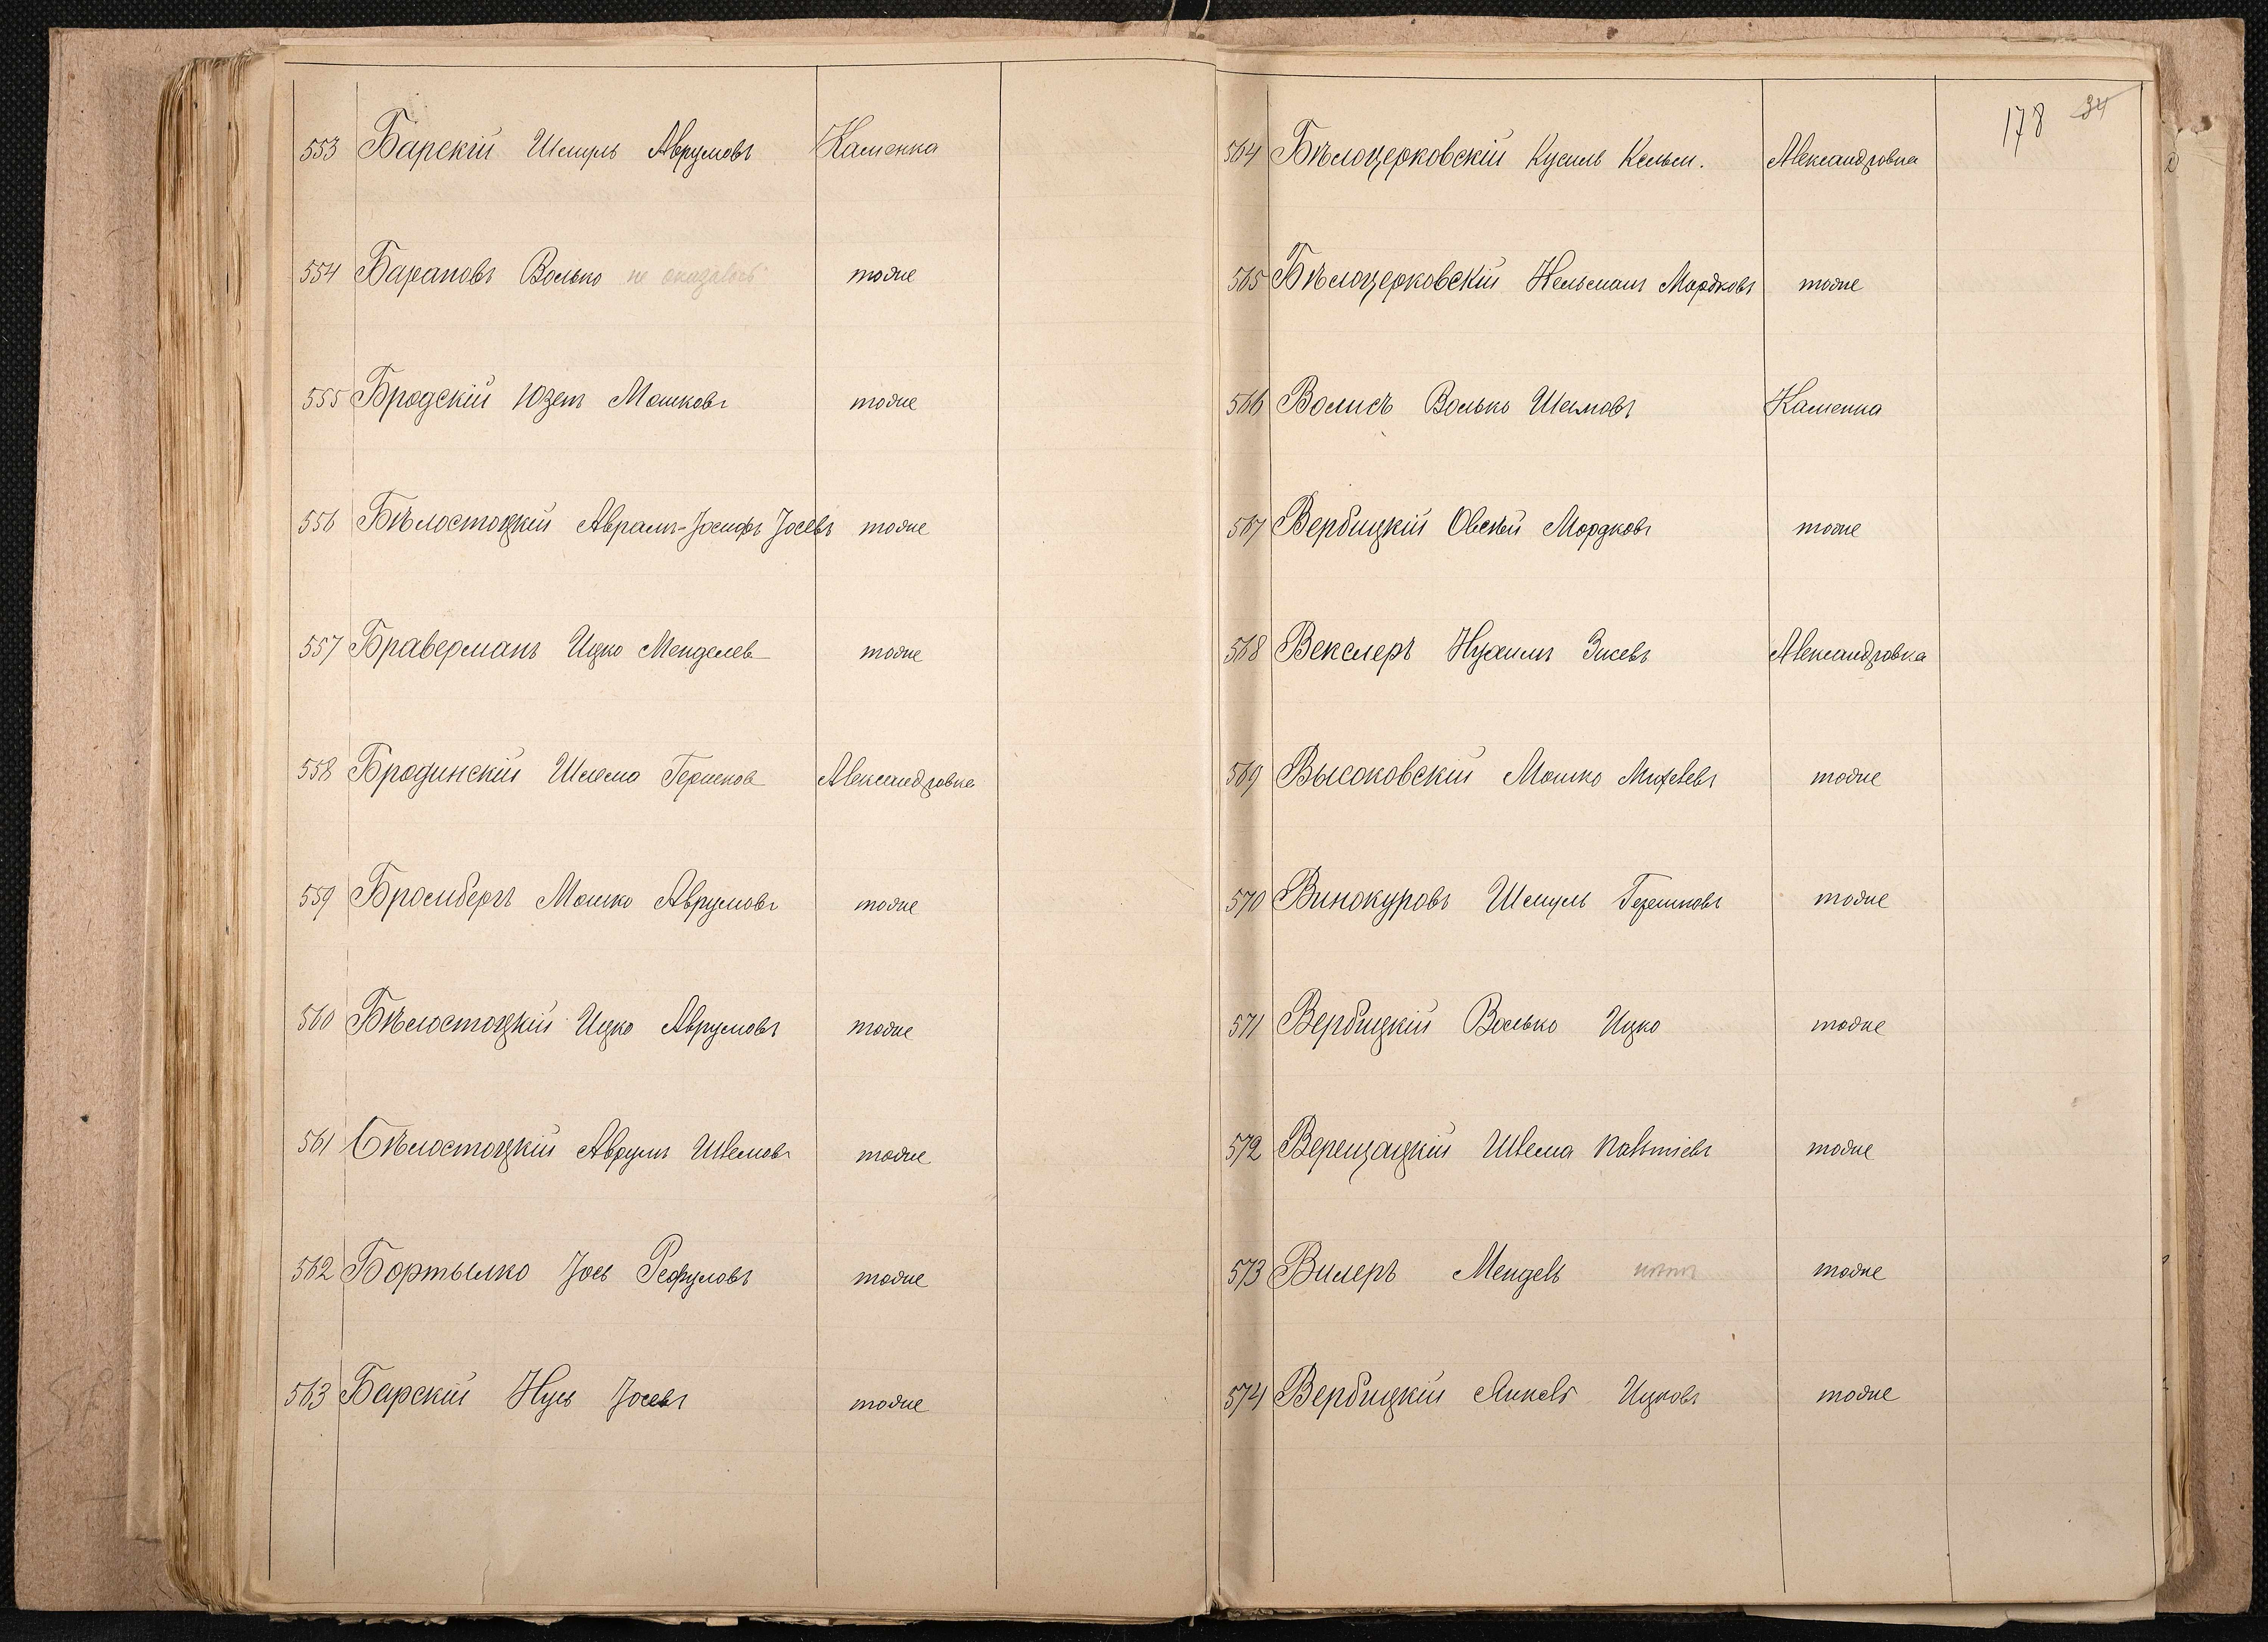 553 Барскій Шмуль Аврумовъ Каменка
554 Барановъ Волько не оказалось тоже
555 Бродскій Юзеп Мошковъ тоже
556 Бѣлостоцкій Аврамъ-Іосифъ Іосевъ тоже
557 Браверманъ Ицко Менделев тоже
558 Бродинскій Шлема Гершков Александровка
559 Бромбергъ Мошко Аврумовъ тоже
560 Бѣлостоцкій Ицко Аврумовъ тоже
561 Бѣлостоцкій Аврумъ Шлемовъ тоже
562 Бортылко Іось тоже
563 Барскій Нусь Іосевъ тоже
178 34
564 Бѣлоцерковскій Кусиль Кельм. Александровка
565 Бѣлоцерковскій Кельманъ Мордковъ тоже
566 Волисъ Волько Шлемовъ Каменка
567 Вербицкій Овсѣй Мордковъ тоже
568 Векслеръ Нухимъ Зисевъ Александровка
569 Высоковскій Мошко тоже
570 Винокуровъ Шмуль Гершковъ тоже
571 Вербицкій Волько Ицко тоже
572 Верещацкій Шлема тоже
573 Вилеръ Мендель тоже
574 Вербицкій Янкель Ицковъ тоже